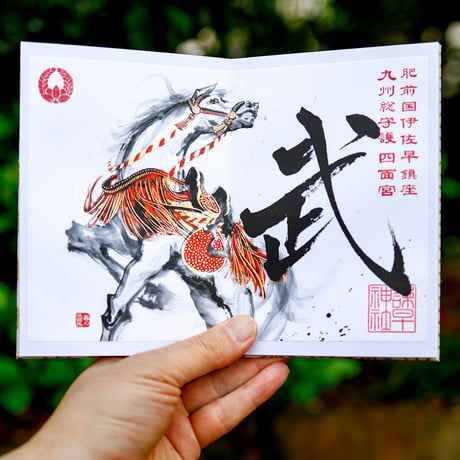 肥前国伊佐早鎮座
九州総守護四面宮
武
諫早
神社